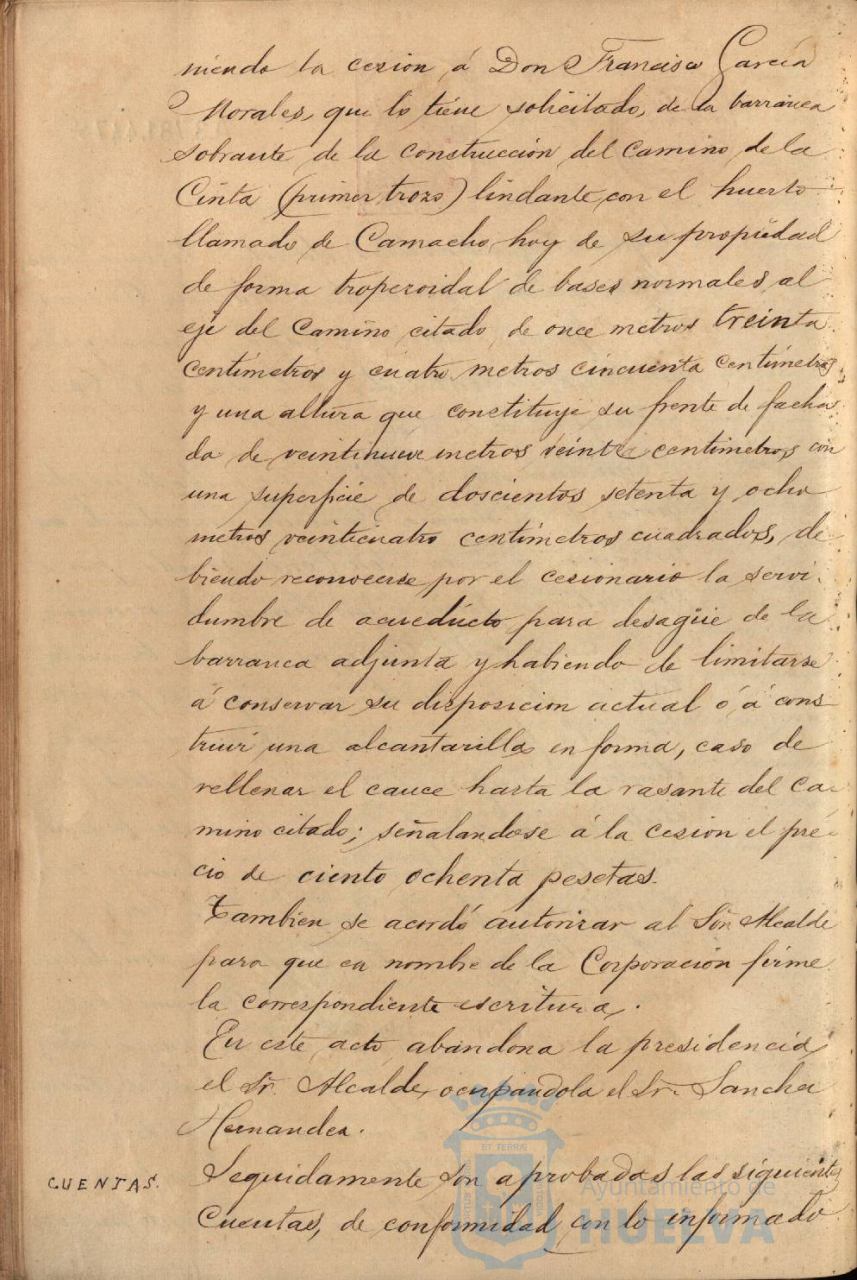 niendo la cesion á Don Francisco García
Morales, que lo tiene solicitado, de la barranca
sobrante de la construcción del camino de la
Cinta (primer trozo) lindante con el huerto
llamado de Camacho, hoy de su propiedad
de forma troperoidal de bases normales al
eje del camino citado de once metros treinta
centímetros y cuatro metros cincuenta centímetros
y una altura que constituye su frente de facha
da de veintinueve metros veinte centimetros con
una superficie de doscientos setenta y ocho
metros veinticuatro centímetros cuadrados, de
biendo reconocerse por el cesionario la servi-
dumbre de acuedúcto para desagüe de la
barranca adjunta y habiendo de limitarse
á conservar su disposicion actual ó á cons
truir una alcantarilla en forma, caso de
rellenar el cauce hasta la rasante del ca-
mino citado; señalandose á la cesion el pre-
cio de ciento ochenta pesetas.
Tambien se acordó autorizar al Sñr. Alcalde
para que en nombre de la Corporación firme
la correspondiente escritura.
En este acto, abandona la presidencia
el Sr. Alcalde, ocupandola el Sr. Sancha
Hernandez.
CUENTAS. Seguidamente son aprobadas las siguientes
cuentas, de conformidad con lo informado
ET TERRÆ
Ayuntamiento de
HUELVA